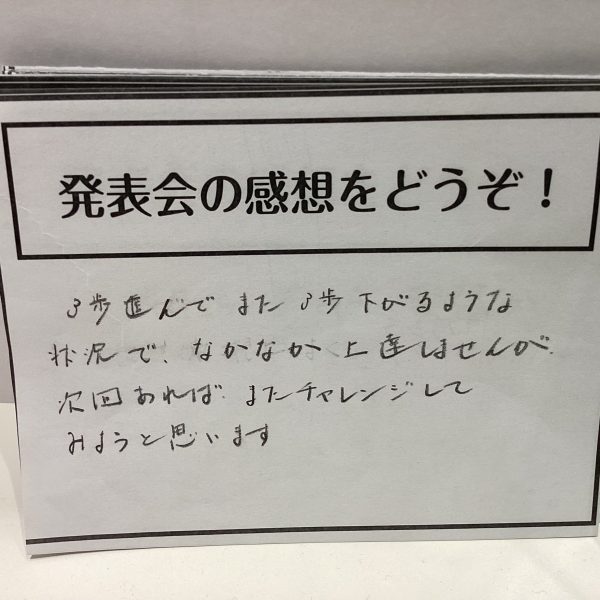 発表会の感想をどうぞ！
3歩進んでまた3歩下がるような
状況で、なかなか上達しませんが、
次回あれば またチャレンジして
みようと思います